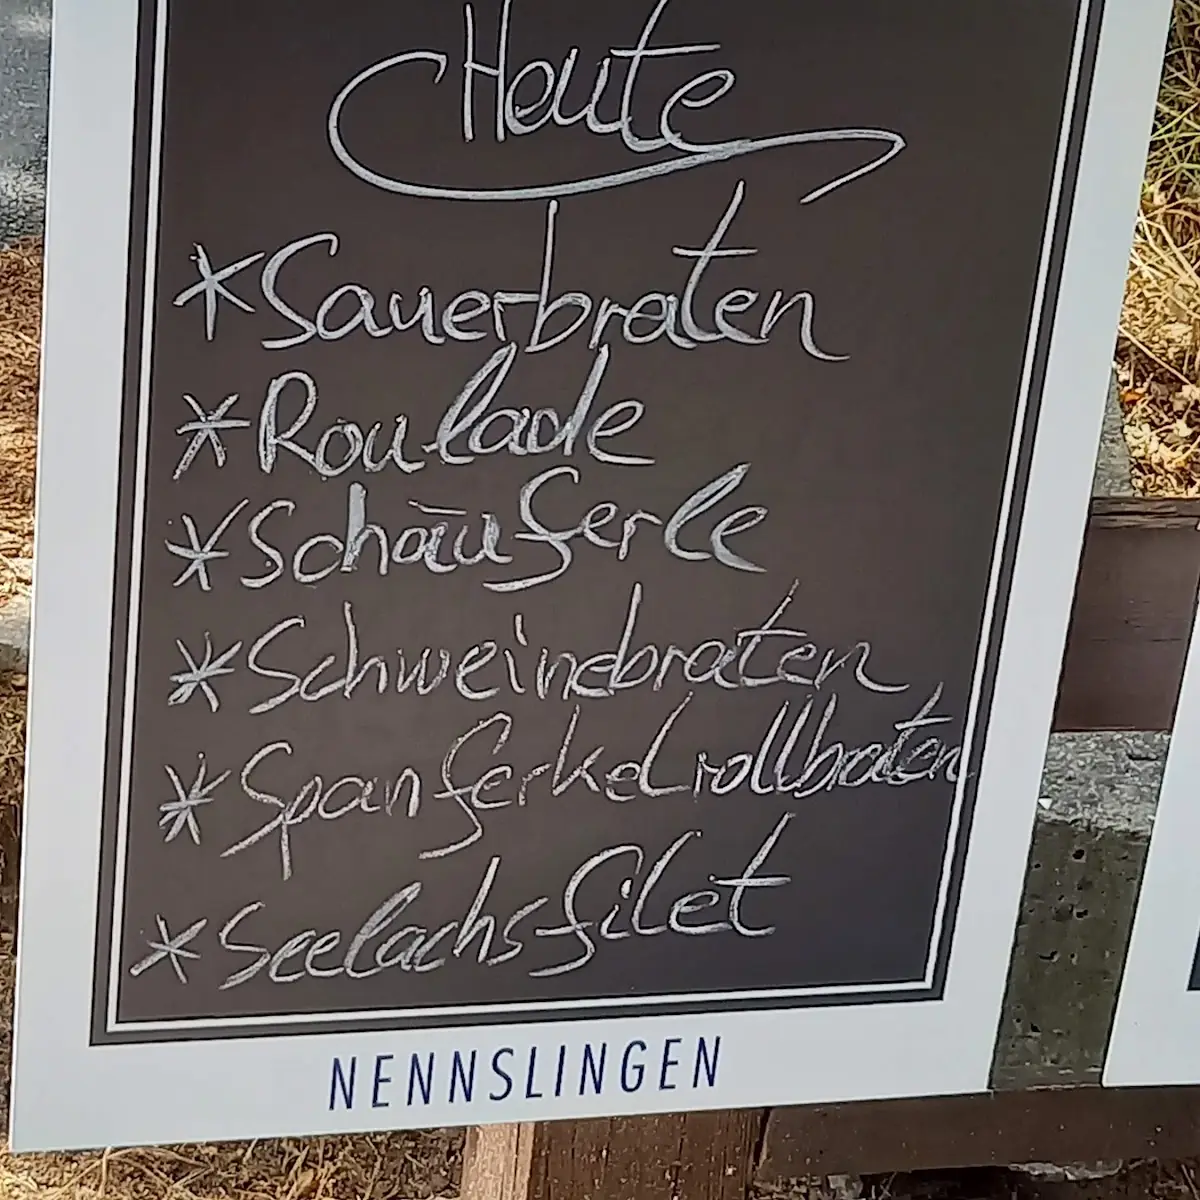 Heute
* Sauerbraten
* Roulade
* Schäuferle
* Schweinebraten
* Spanferkelrollbraten
* Seelachsfilet
NENNSLINGEN